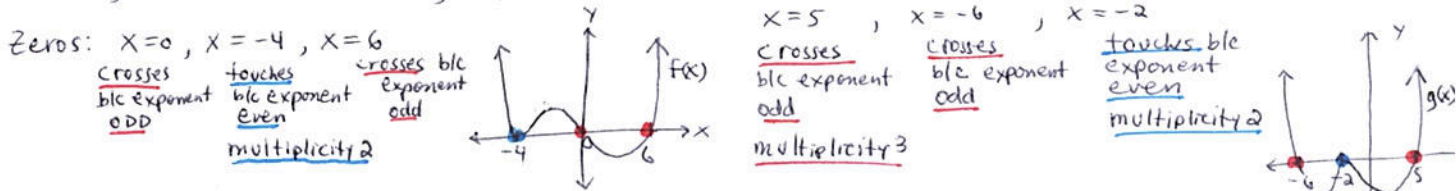 Zeros: x=0, x=-4, x=6
crosses
b/c exponent
ODD
touches
b/c exponent
even
multiplicity 2
crosses b/c
exponent
odd
Y
f(x)
X
-4
6
x=5 , x=-6 , x=-2
crosses
b/c exponent
odd
multiplicity 3
crosses
b/c exponent
odd
touches b/c
exponent
even
multiplicity 2
Y
g(x)
-6
-2
5